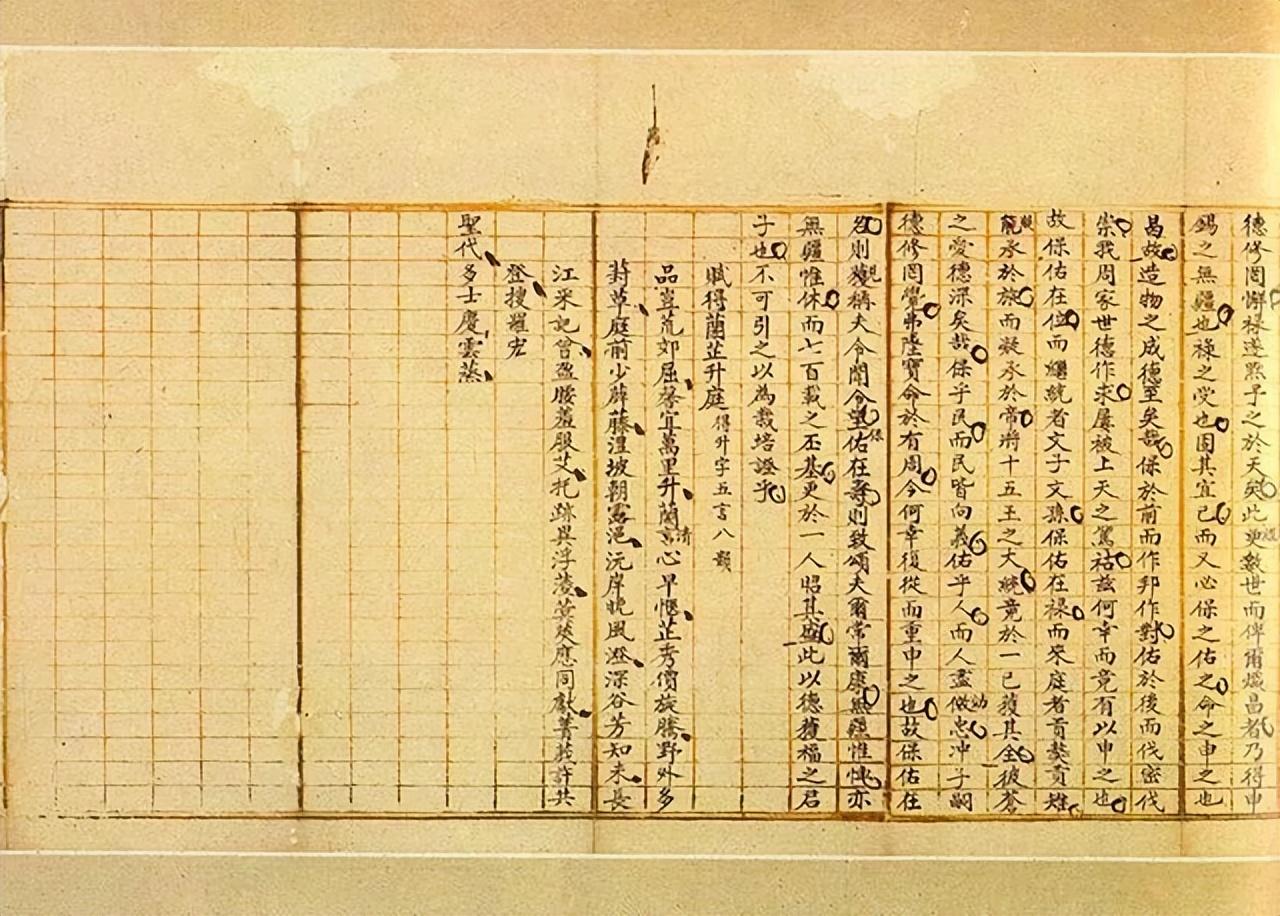 德修罔懈祿遂點予之於天矣此更數世而俾爾熾昌者乃得申
錫之無疆也祿之受也固其宜已而又必保之佑之命之申之也
昌故造物之成德至矣哉保於前而作邦作對佑於後而伐密伐
崇我周家世德作求屢被上天之篤祜茲何幸而竟有以申之也
故保佑在位而繼統者文子文孫保佑在祿而來庭者貢獒貢雉
籠承於旅而凝承於帝將十五王之大統竟於一已獲其全彼蒼
之愛德深矣哉保乎民而民皆向義佑乎人而人盡傚忠沖子嗣
德修罔覺弗墜寶命於有周今何幸復從而重申之也故保佑在
名則獲稱夫令聞令望佑在壽則致頌夫爾常爾康無疆惟恤亦
無疆惟休而七百載之丕基更於一人昭其盛此以德獲福之君
子也不可引之以為栽培證乎
賦得蘭芷升庭得升字五言八韻
品豈荒郊屈馨宜萬里升蘭言清心早愜芷秀價旋騰野外多
葑草庭前少薜藤澧坡朝露浥沅岸晚風澄深谷芳知未長
江采記曾盈腰羞服艾托跡異浮菱蓂莢應同獻菁莪許共
登搜羅宏
聖代多士慶雲蒸